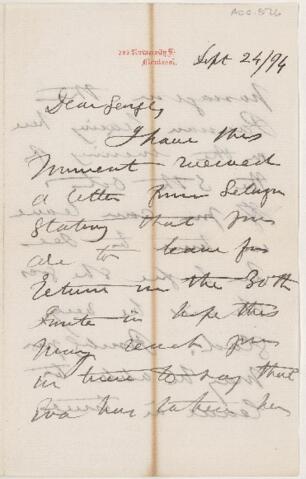 ACC. 526
Montreal.
Sept 24/94
Dear George,
I have this
moment received
a letter from
stating that you
are to leave for
return on the 30th
I write in hope this
may reach you
in time to say that
Eva has taken her